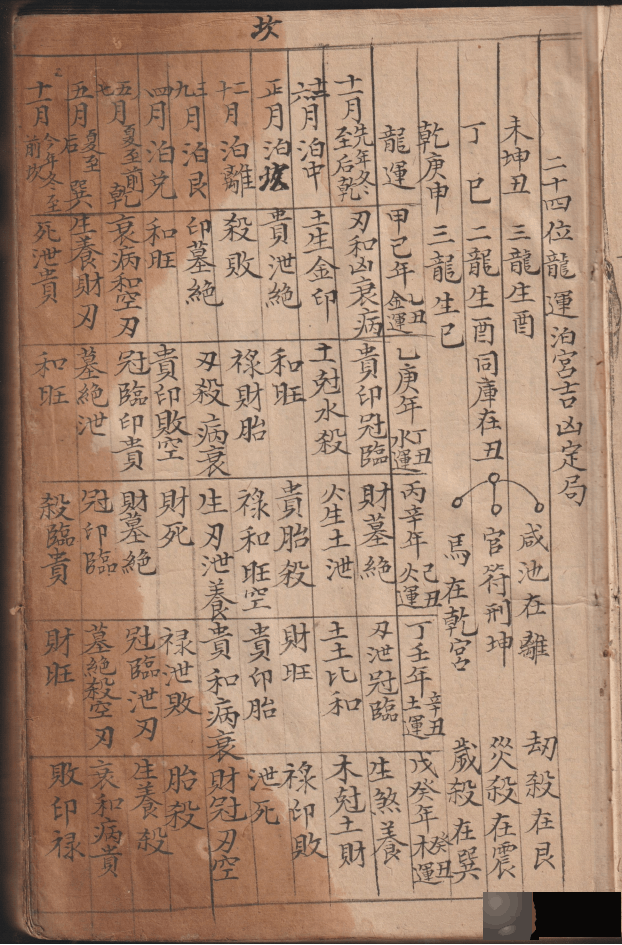 坎
二十四位龍運泊宮吉凶定局
未坤丑 三龍生酉 咸池在離 劫殺在艮
丁巳 二龍生酉同庫在丑 官符刑坤 災殺在震
乾庚申 三龍生巳 馬在乾宮 歲殺在巽
龍運 甲己年 乙丑金運 乙庚年 丁丑水運 丙辛年 己丑火運 丁壬年 辛丑土運 戊癸年 癸丑木運
十一月先年冬至后乾 刃和凶衰病 貴印冠臨 財墓絶 刃泄冠臨 生煞養
十二六月泊中 土生金印 土尅水殺 火生土泄 土土比和 木尅土財
正月泊坎 貴泄絶 和旺 貴胎殺 財旺 祿印敗
二十月泊離 殺敗 祿財胎 祿和旺空 貴印胎 泄死
三九月泊艮 印墓絶 刃殺病衰 生刃泄養 貴和病衰 財冠刃空
四月泊兌 和旺 貴印敗空 財死 禄泄敗 胎殺
五月夏至前乾 衰病和空刃 冠臨印貴 財墓絶 冠臨泄刃 生養殺
五月夏至后巽 生養財刃 墓絶泄 冠印臨 墓絶殺空刃 衰和病貴
十一月今年冬至前坎 死泄貴 和旺 殺臨貴 財旺 敗印禄